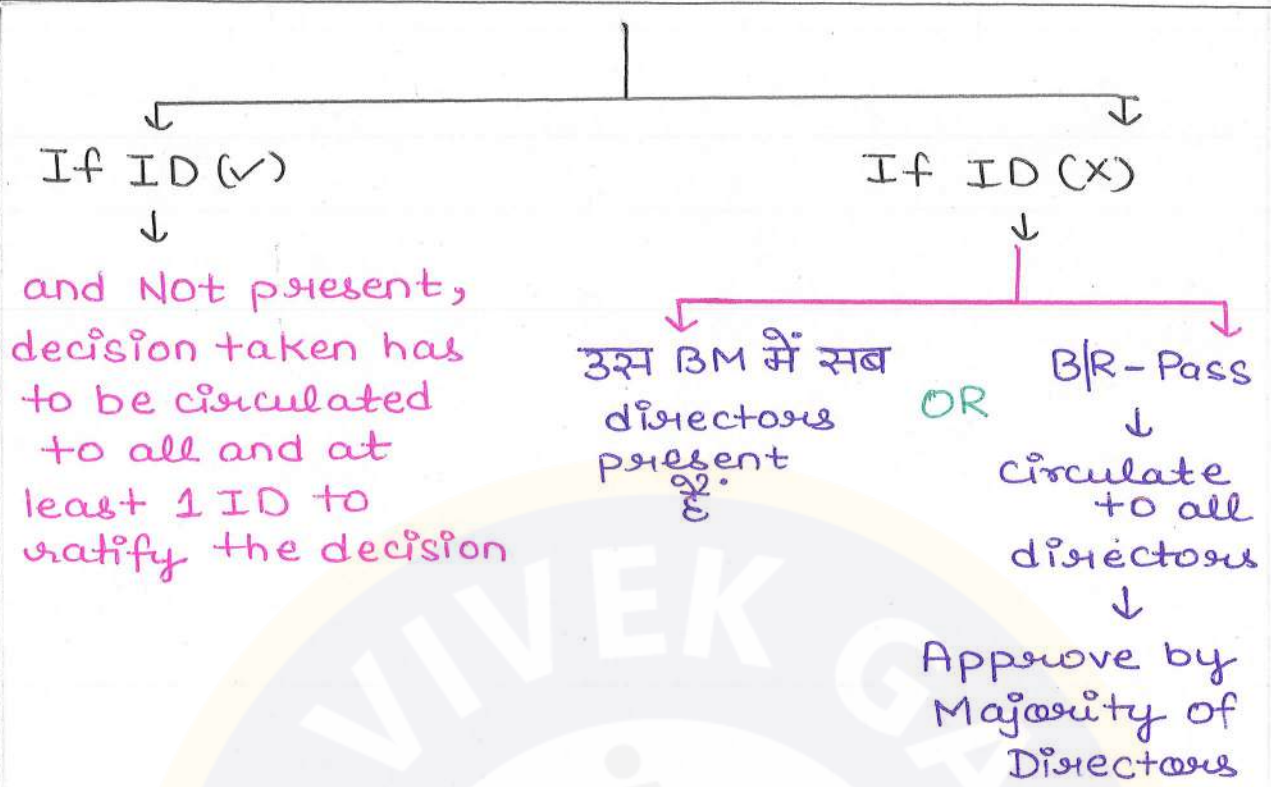 If ID (✓)
If ID (X)
and Not present,
decision taken has
to be circulated
to all and at
least 1 ID to
ratify the decision
उस BM में सब
directors
present
हैं.
OR
B/R - Pass
circulate
to all
directors
Approve by
Majority of
Directors
VIVEK GA